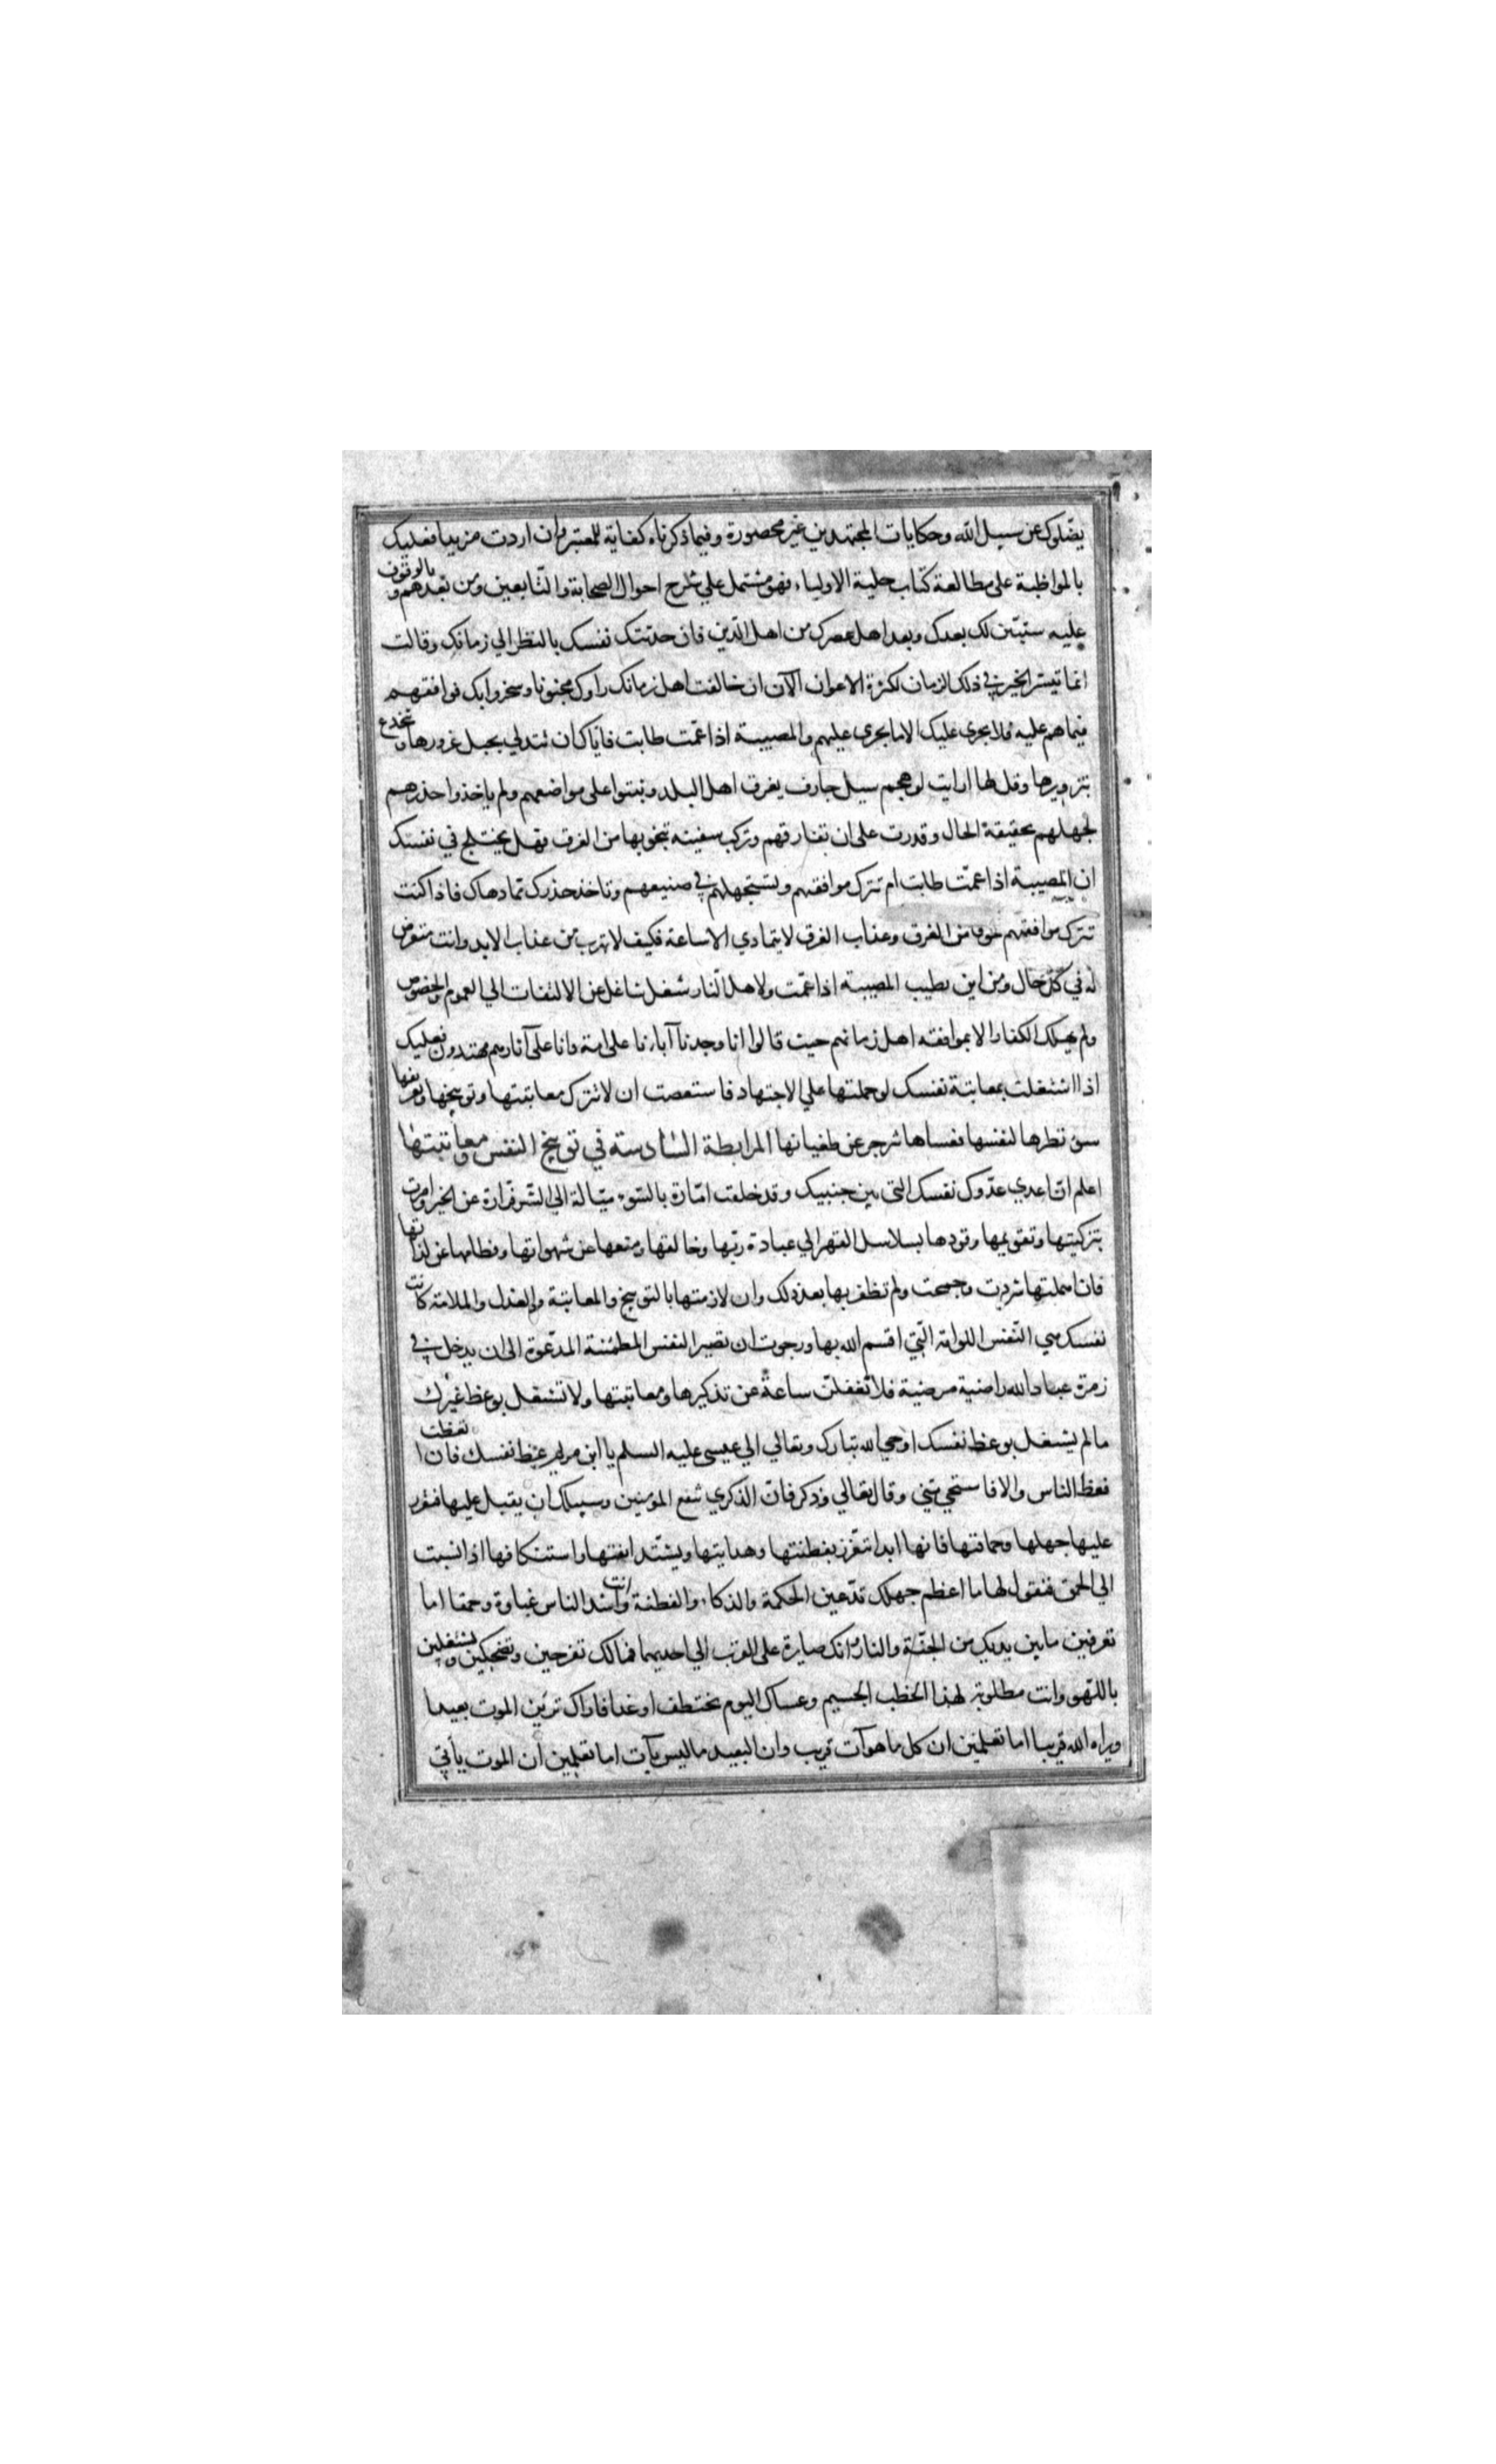 يضلوك عن سبيل الله وحكايات المجتهدين غير محصورة وفيما ذكرناه كفاية للمعتبر وان اردت مزيدا فعليك
بالمواظبة على مطالعة كتاب حلية الاولياء فهو مشتمل علي شرح احوال الصحابة والتابعين ومن بعدهم وبالوقوف
عليه ستبين لك بعدك وبعد اهل عصرك من اهل الدين فان حدثتك نفسك بالنظر الي زمانك وقالت
انما تيسر الخير في ذلك الزمان لكثرة الاعوان الآن ان خالفت اهل زمانك راوك مجنونا وسخروا بك فوافقهم
فيما هم عليه فلا يجرى عليك الا ما يجرى عليهم والمصيبة اذا عمت طابت فاياك ان تتدلي بحبل غرورها وتنخدع
بتزويرها وقل لها ارايت لو هجم سيل جارف يغرق اهل البلد وثبتوا على مواضعهم ولم ياخذوا حذرهم
لجهلهم بحقيقة الحال وقدرت على ان تفارقهم وتركب سفينه تنجو بها من الغرق فهل يختلج في نفسك
ان المصيبة اذا عمت طابت ام تترك موافقتهم وتستجهلهم في صنيعهم وتاخذ حذرك مما دهاك فاذا كنت
تترك موافقتهم خوفا من الغرق وعذاب الغرق لا يتمادي الا ساعة فكيف لا تهرب من عذاب الابد وانت متعرض
له في كل حال ومن اين يطيب المصيبة اذا عمت ولاهل النار شغل شاغل عن الالتفات الي العموم والخصوص
ولم يهلك الكفار الا بموافقة اهل زمانهم حيث قالوا انا وجدنا آباءنا على امة وانا على آثارهم مهتدون فعليك
اذا اشتغلت بمعاتبة نفسك لو حملتها علي الاجتهاد فاستعصت ان لا تترك معاتبتها وتوبيخها وتعريفها
سوء نظرها لنفسها فعساها تنزجر عن طغيانها المرابطة السادسة في توبيخ النفس ومعاتبتها
اعلم ان اعدي عدوك نفسك التي بين جنبيك وقد خلقت امارة بالسوء ميالة الي الشر فرارة عن الخير وامرت
بتزكيتها وتقويمها وقودها بسلاسل القهر الي عبادة ربها وخالقها ومنعها عن شهواتها وفطامها عن لذاتها
فان اهملتها شردت وجمحت ولم تظفر بها بعد ذلك وان لازمتها بالتوبيخ والمعاتبة والعذل والملامة كانت
نفسك هي النفس اللوامة التي اقسم الله بها ورجوت ان تصير النفس المطمئنة المدعوة الى ان يدخل في
زمرة عباد الله راضية مرضية فلا تغفلن ساعة عن تذكيرها ومعاتبتها ولا تشتغل بوعظ غيرك
مالم يشتغل بوعظ نفسك اوحي الله تبارك وتعالي الي عيسى عليه السلم يا ابن مريم عظ نفسك فان اتعظت
فعظ الناس والا فاستحي مني وقال تعالي وذكر فان الذكري تنفع المومنين وسبيلك ان يقبل عليها فتقرر
عليها جهلها وحماقتها فانها ابدا تتعزز بفطنتها وهدايتها ويشتد انفتها واستنكافها اذا نسبت
الي الحمق فنقول لها ما اعظم جهلك تدعين الحكمة والذكاء والفطنة وانت اشد الناس غباوة وحمقا اما
تعرفين ما بين يديك من الجنة والنار وانك صايرة على القرب الي احديهما فمالك تفرحين وتضحكين وتشتغلين
باللهو وانت مطلوبة لهذا الخطب الجسيم وعساك اليوم تختطف او غدا فاراك ترين الموت بعيدا
ويراه الله قريبا اما تعلمين ان كل ما هو آت قريب وان البعيد ما ليس بآت اما تعلمين ان الموت يأتي